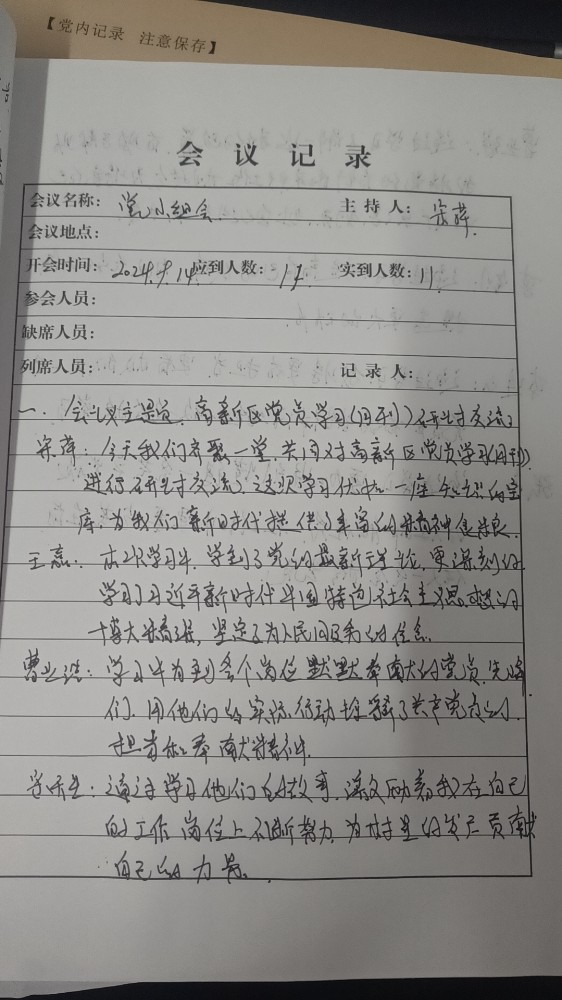 【党内记录 注意保存】
会议记录
会议名称：党小组会 主持人：宋萍
会议地点：
开会时间：2024.9.14 应到人数：11 实到人数：11
参会人员：
缺席人员：
列席人员： 记录人：
一、会议主题：高新区党员学习(月刊)研讨交流
宋萍：今天我们齐聚一堂，共同对高新区党员学习(月刊)
进行研讨交流，这次学习犹如一座知识的宝
库，为我们新时代提供了丰富的精神食粮。
王磊：本次学习中，学到了党的最新理论，更深刻的
学习了习近平新时代中国特色社会主义思想的
十大精神，坚定了为人民服务的信念。
学习中看到各个岗位默默奉献的党员先锋
们，用他们的实际行动诠释了共产党员的
担当和奉献精神。
通过学习他们的故事，深深激励着我在自己
的工作岗位上不断努力，为村里的发展贡献
自己的力量。